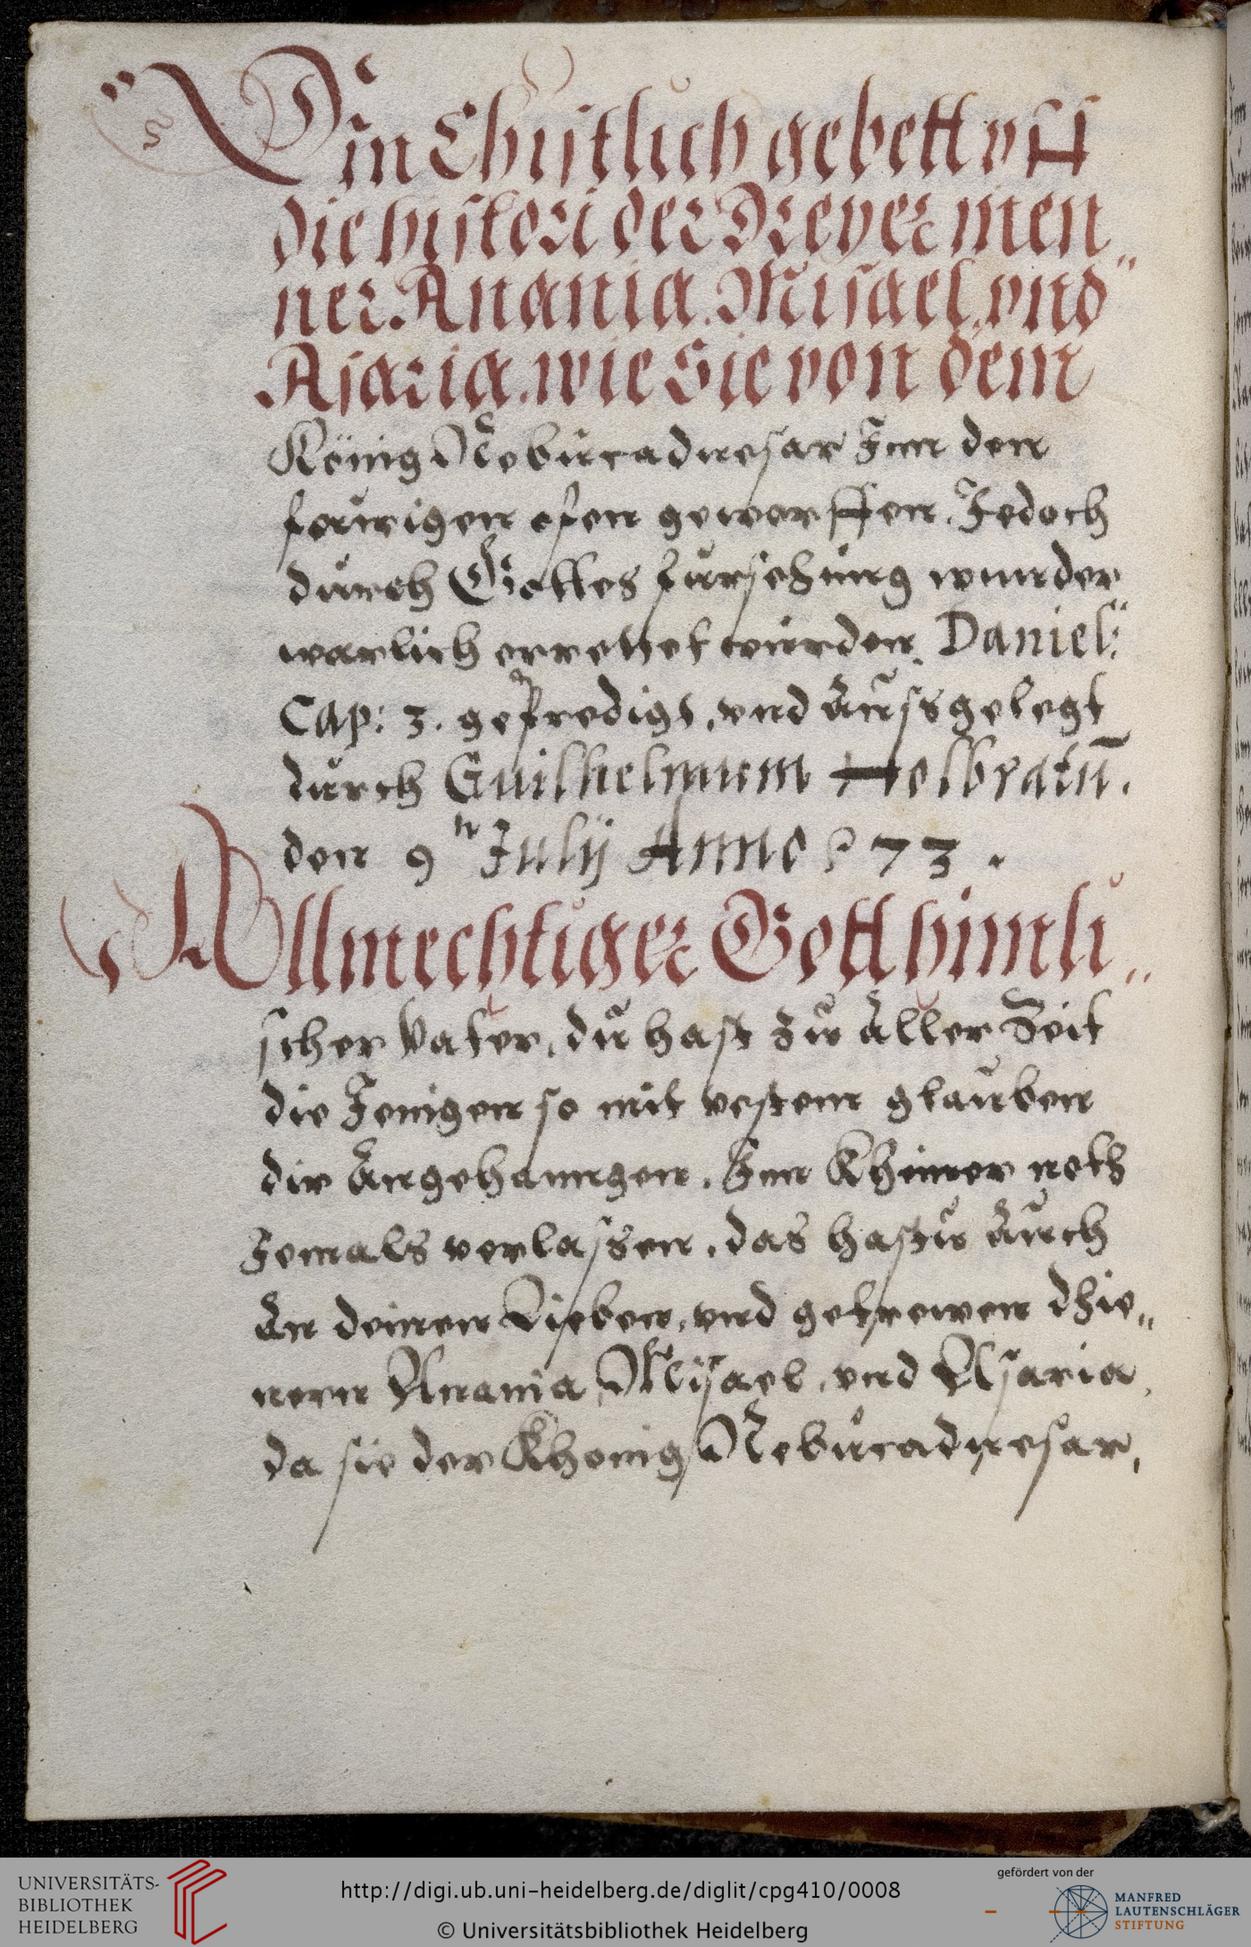 Ein Christlich gebett vff
die histori der Dreyer men„
ner Anania. Misael, vnd
Asaria. wie Sie von dem
König Nebucadnesar Inn den
feurigen ofen geworffen. Jedoch
durch Gottes fürsehung wunder
warlich errettet wurden. Daniel:
Cap: 3. gepredigt, vnd Außgelegt
durch Guilhelmum Holbratū.
den 9ᵗⁿ Julij Anno 73.
Allmechtiger Gott himli„
scher Vater, du hast zu Aller Zeit
die Jenigen so mit vestem glauben
dir Angehanngen. Inn Kheiner noth
Jemals verlassen, das hastu Auch
An deinen Lieben, vnd getrewen dhie„
nern Anania, Misael, vnd Asaria,
da sie der Khonig Nebucadnesar,
UNIVERSITÄTS-
BIBLIOTHEK
HEIDELBERG
http://digi.ub.uni-heidelberg.de/diglit/cpg410/0008
© Universitätsbibliothek Heidelberg
gefördert von der
MANFRED
LAUTENSCHLÄGER
STIFTUNG